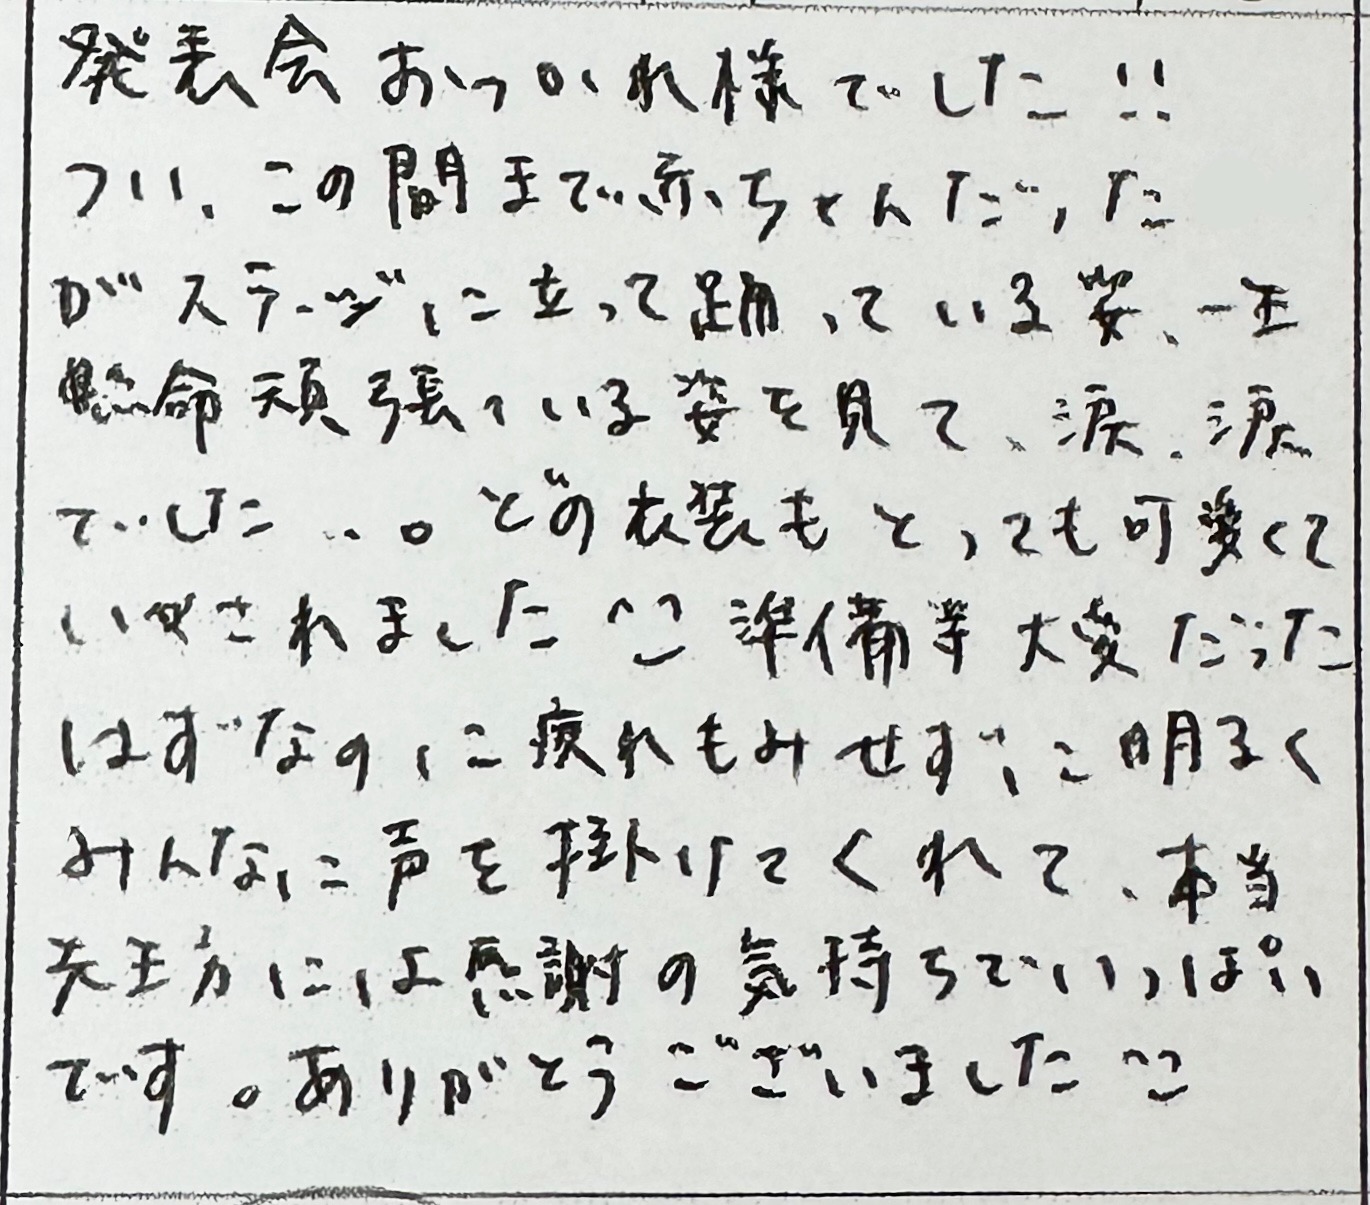 発表会おつかれ様でした!!
つい、この間まで赤ちゃんだった
がステージに立って踊っている姿、一生
懸命頑張っている姿を見て、涙、涙
でした...。どの衣装もとっても可愛くて
いやされました^^ 準備等大変だった
はずなのに疲れもみせずに明るく
みんなに声を掛けてくれて、本当
先生方には感謝の気持ちでいっぱい
です。ありがとうございました^^